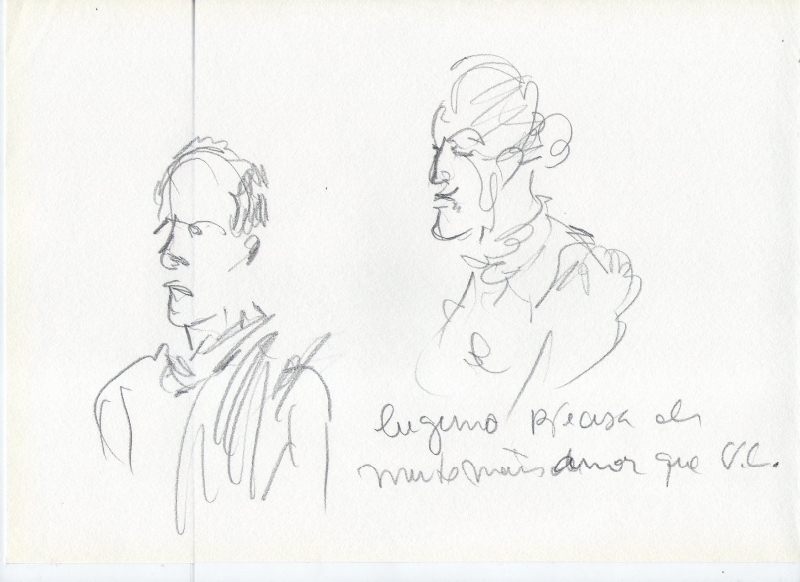 Eugenio precisa de
muito mais amor que V.C.